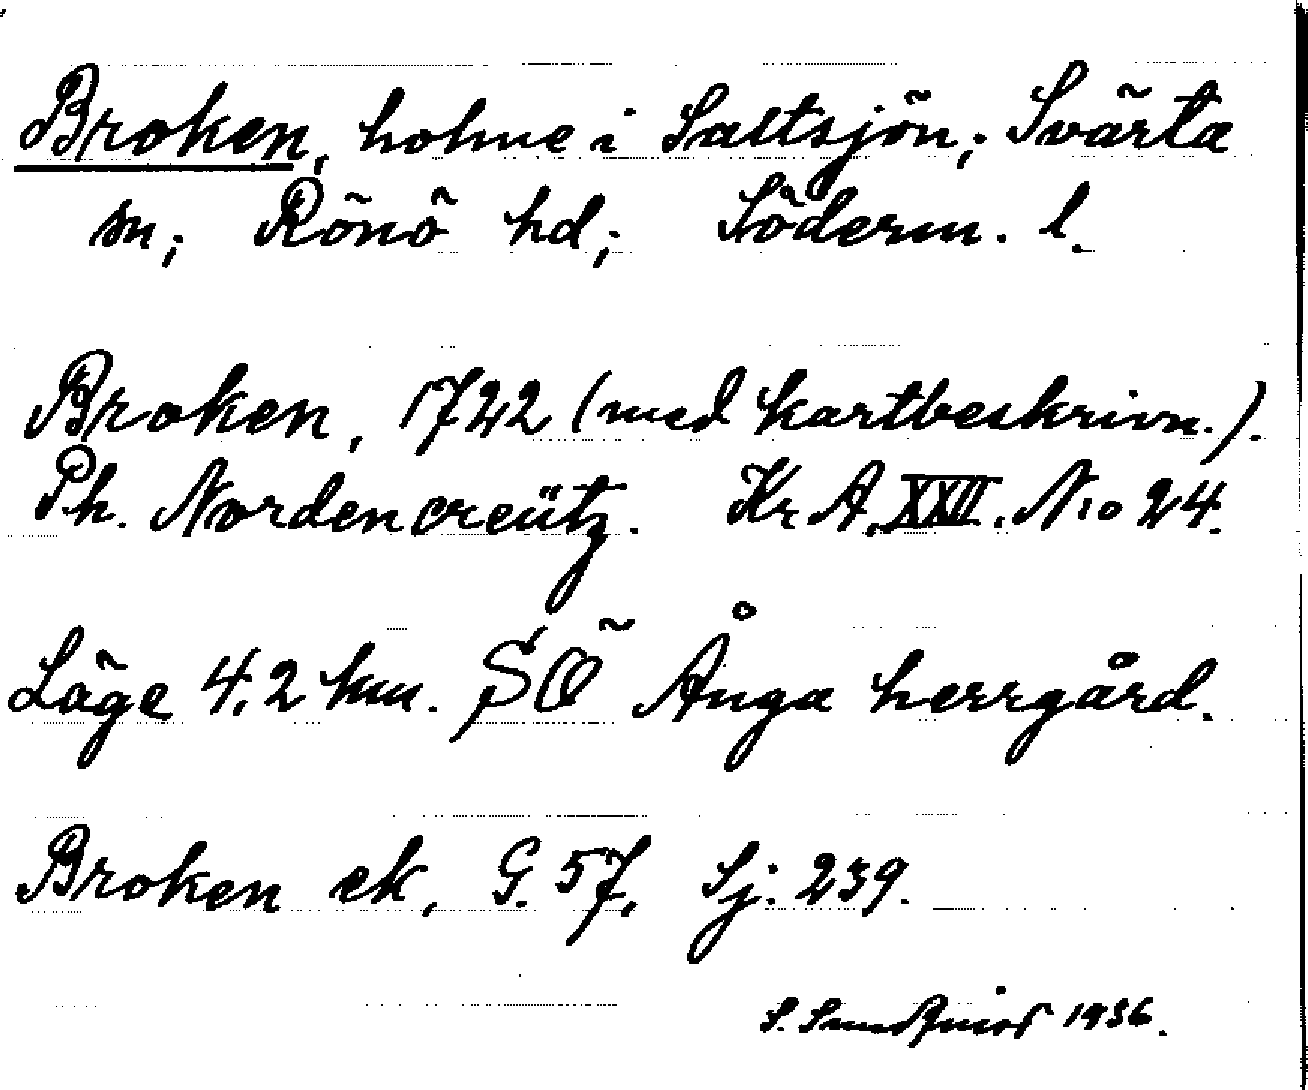 Broken, holme i Saltsjön; Svärta
sn; Rönö hd; Söderm. l.
Broken, 1722 (med kartbeskrivn.).
Ph. Nordencreütz. Kr A. XXII. No 24.
Läge 4,2 km. SÖ Ånga herrgård.
Broken ek, G. 57, Sj. 239.
S. Sundquist 1936.